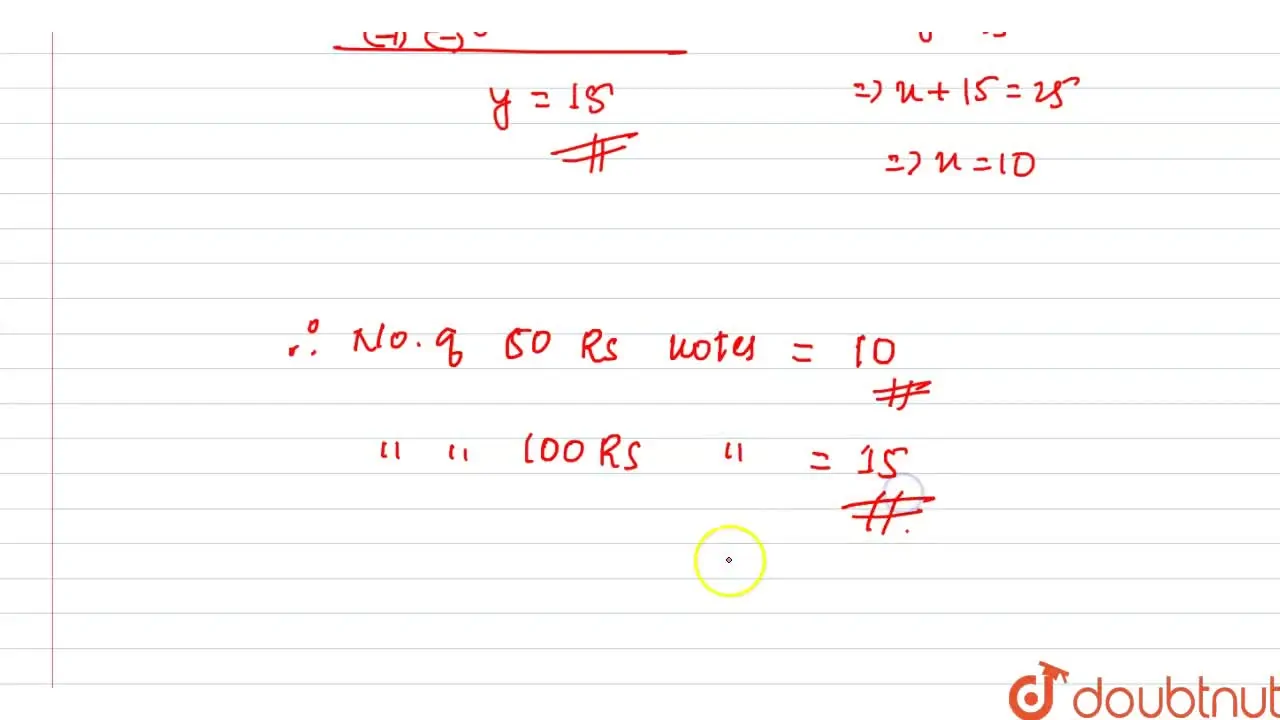 (-) (-)
y = 15
=> x + 15 = 25
=> x = 10
∴ No. of 50 Rs notes = 10
" " 100 Rs " = 15
doubtnut